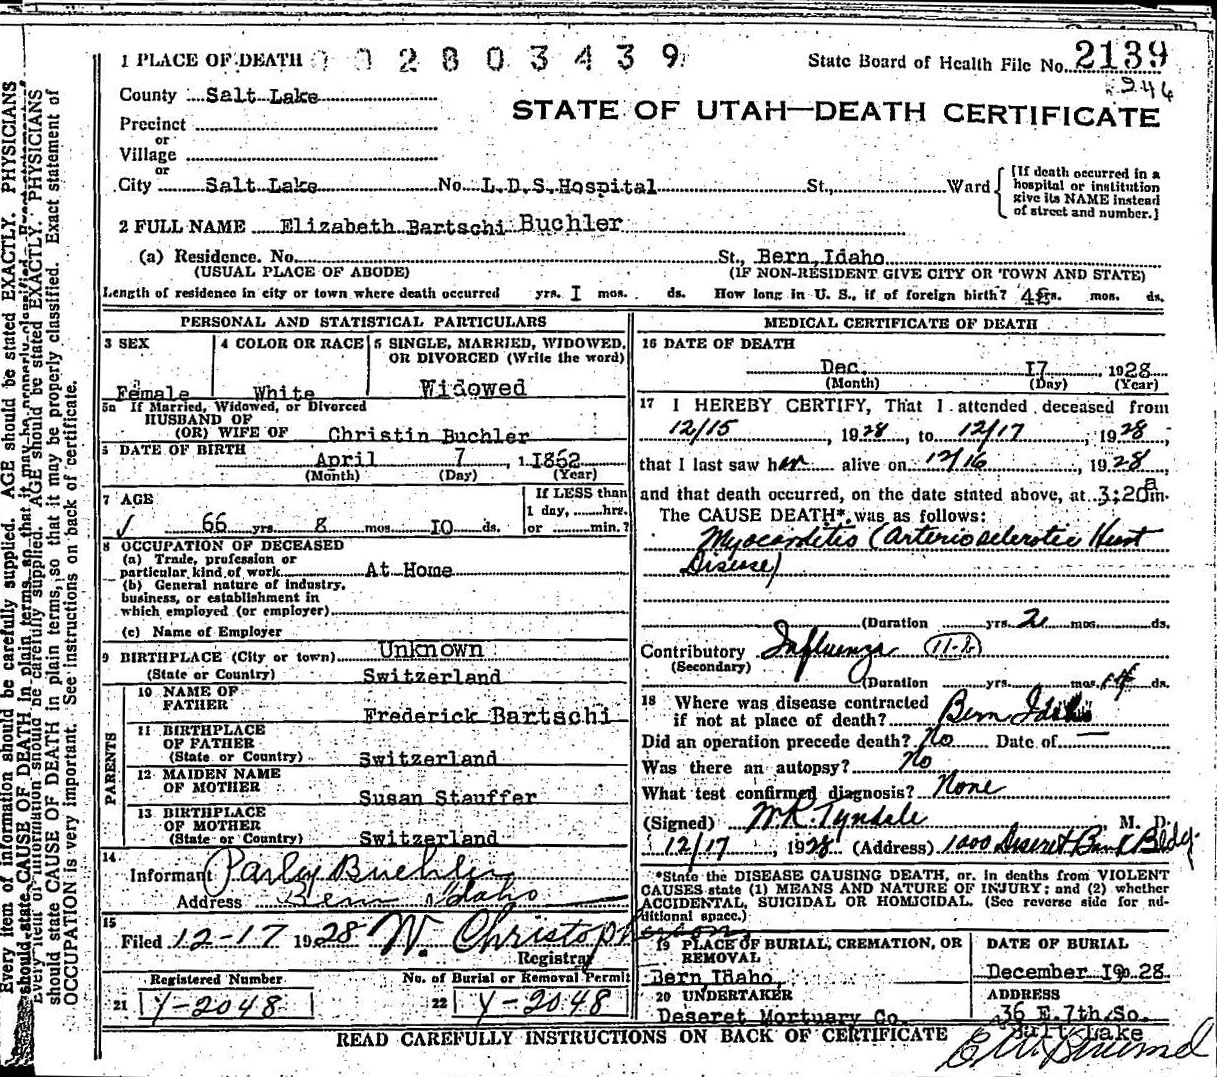 1 PLACE OF DEATH 0 0 2 8 0 3 4 3 9
State Board of Health File No. 2139
246
County Salt Lake
STATE OF UTAH—DEATH CERTIFICATE
Precinct
or
Village
or
City Salt Lake No. L.D.S.Hospital St., Ward
[If death occurred in a
hospital or institution
give its NAME instead
of street and number.]
2 FULL NAME Elizabeth Bartschi Buchler
(a) Residence. No. St., Bern, Idaho
(USUAL PLACE OF ABODE) (IF NON-RESIDENT GIVE CITY OR TOWN AND STATE)
Length of residence in city or town where death occurred yrs. I mos. ds. How long in U. S., if of foreign birth? yrs. mos. ds.
PERSONAL AND STATISTICAL PARTICULARS
3 SEX 4 COLOR OR RACE 5 SINGLE, MARRIED, WIDOWED,
OR DIVORCED (Write the word)
Female White Widowed
5a If Married, Widowed, or Divorced
HUSBAND OF
(OR) WIFE OF Christin Buchler
6 DATE OF BIRTH
April 7, 1862
(Month) (Day) (Year)
7 AGE If LESS than
1 day, hrs.
66 yrs. 8 mos. IO ds. or min.?
8 OCCUPATION OF DECEASED
(a) Trade, profession or
particular kind of work At Home
(b) General nature of industry,
business, or establishment in
which employed (or employer)
(c) Name of Employer
9 BIRTHPLACE (City or town) Unknown
(State or Country) Switzerland
PARENTS
10 NAME OF
FATHER Frederick Bartschi
11 BIRTHPLACE
OF FATHER
(State or Country) Switzerland
12 MAIDEN NAME
OF MOTHER Susan Stauffer
13 BIRTHPLACE
OF MOTHER
(State or Country) Switzerland
14
Informant Parley Buehler
Address Bern Idaho
15
Filed 12-17 1928 W. Christopherson
Registrar
Registered Number No. of Burial or Removal Permit
21 Y-2048 22 Y-2048
MEDICAL CERTIFICATE OF DEATH
16 DATE OF DEATH
Dec. I7, 1928
(Month) (Day) (Year)
17 I HEREBY CERTIFY, That I attended deceased from
12/15, 1928, to 12/17, 1928,
that I last saw her alive on 12/16, 1928,
and that death occurred, on the date stated above, at 3:20 a m.
The CAUSE DEATH* was as follows:
Myocarditis (Arteriosclerotic Heart
Disease)
(Duration yrs. 2 mos. ds.
Contributory Influenza 11-B
(Secondary)
(Duration yrs. mos. 14 ds.
18 Where was disease contracted
if not at place of death? Bern Idaho
Did an operation precede death? No Date of —
Was there an autopsy? No
What test confirmed diagnosis? None
(Signed) W.R. Tyndale M. D.
12/17, 1928 (Address) 1000 Deseret Bank Bldg.
*State the DISEASE CAUSING DEATH, or, in deaths from VIOLENT
CAUSES state (1) MEANS AND NATURE OF INJURY; and (2) whether
ACCIDENTAL, SUICIDAL OR HOMICIDAL. (See reverse side for ad-
ditional space.)
19 PLACE OF BURIAL, CREMATION, OR
REMOVAL
Bern, Idaho,
DATE OF BURIAL
December 19, 28
20 UNDERTAKER
Deseret Mortuary Co.
ADDRESS
36 E. 7th So.
Salt Lake
READ CAREFULLY INSTRUCTIONS ON BACK OF CERTIFICATE
Every item of information should be carefully supplied. AGE should be stated EXACTLY. PHYSICIANS
should state CAUSE OF DEATH in plain terms, so that it may be properly classified. Exact statement of
OCCUPATION is very important. See instructions on back of certificate.